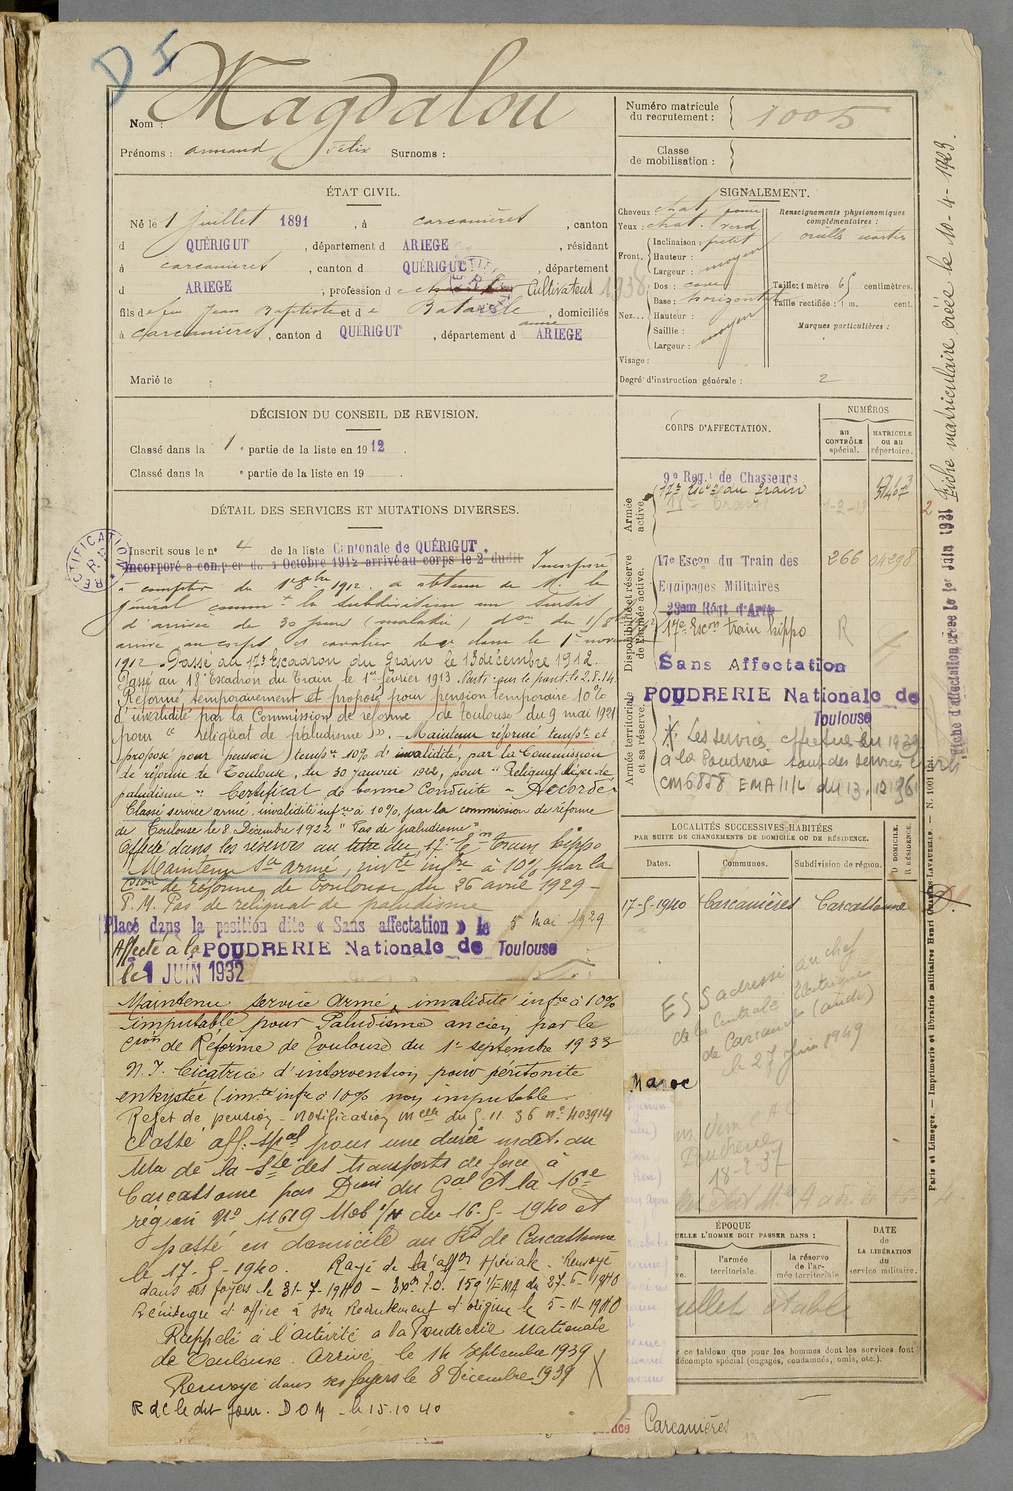 D I
Nom : Magdalou
Prénoms : armand Félix Surnoms :
Numéro matricule
du recrutement : 1005
Classe
de mobilisation :
ÉTAT CIVIL.
Né le 1 juillet 1891, à carcanières, canton
d QUÉRIGUT, département d ARIEGE, résidant
à carcanières, canton d QUÉRIGUT, département
d ARIEGE, profession d Cultivateur 1936
fils de feu Jean Baptiste et de Batarde, domiciliés
à Carcanières, canton d QUÉRIGUT, département d ARIEGE
Marié le
SIGNALEMENT.
Cheveux chat.
Yeux : chat. verd
Front. Inclinaison : petit
Hauteur :
Largeur : moyen
Nez... Dos : cave
Base : horizontal
Hauteur :
Saillie :
Largeur : moyen
Visage :
Renseignements physionomiques
complémentaires :
Taille : 1 mètre 65 centimètres.
Taille rectifiée : 1 m. cent.
Marques particulières :
Degré d'instruction générale : 2
DÉCISION DU CONSEIL DE REVISION.
Classé dans la 1e partie de la liste en 1912.
Classé dans la e partie de la liste en 19
DÉTAIL DES SERVICES ET MUTATIONS DIVERSES.
RECTIFICATION
Inscrit sous le no 4 de la liste Cantonale de QUÉRIGUT.
Incorporé à compter du 1 Octobre 1912 arrivé au corps le 2 dudit Incorporé
à compter du 1er 8bre 1912 a obtenu de M. le
général commt la subdivision un sursis
d'arrivée de 30 jours (maladie)
arrivé au corps et cavalier de 2e classe le 1er novembre
1912 - Passé au 17e Escadron du Train le 13 décembre 1912.
Passé au 18e Escadron du Train le 1er février 1913.
Réformé temporairement et proposé pour pension temporaire 10%
d'invalidité par la Commission de réforme de Toulouse du 9 mai 1921
pour "reliquat de paludisme". - Maintenu réformé tempre et
proposé pour pension tempre 10% d'invalidité, par la Commission
de réforme de Toulouse, du 30 janvier 1922, pour "Reliquat léger de
paludisme". Certificat de bonne Conduite - Accordé -
Classé service armé, invalidité infre à 10%, par la commission de réforme
de Toulouse le 8 Décembre 1922 "Pas de paludisme"
Affecté dans les réserves au titre du 17e Ecm train hippo
Maintenu Sce armé, invté infre à 10% par la
Cion de réforme de Toulouse du 26 avril 1929 -
P. M. Pas de reliquat de paludisme
Placé dans la position dite « Sans affectation » le 5 Mai 1929
Affecté à la POUDRERIE Nationale de Toulouse
le 1 JUIN 1932
Maintenu service armé, invalidité infre à 10%
imputable pour Paludisme ancien par la
Cion de Réforme de Toulouse du 1er septembre 1933
N. I. Cicatrice d'intervention pour péritonite
enkystée (invté infre à 10% non imputable.
Rejet de pension, notification Melle du 5.11.36 no 403914
Classé aff. spal pour une durée indét. au
titre de la Sté des transports de force à
Carcassonne par Dion du Gal Ct la 16e
région No 11619 Mob 1/N du 16-5-1940 et
passé en domicile au Rt de Carcassonne
le 17-5-1940. Rayé de l'affon spéciale. Renvoyé
dans ses foyers le 31-7-1940 - 159 1/EMA du 27-6-1940
Réintégré d'office à son Recrutement d'origine le 5-11-1940
Rappelé à l'activité à la Poudrerie Nationale
de Toulouse. Arrivé le 14 Septembre 1939
Renvoyé dans ses foyers le 8 Décembre 1939 X
R d C le dit jour. DOM - le 15.10.40
CORPS D'AFFECTATION.
NUMÉROS
au
CONTRÔLE
spécial.
MATRICULE
ou au
répertoire.
Armée
active.
9e Régt de Chasseurs
17e Escon du Train
Disponibilité et réserve
de l'armée active.
17e Escon du Train des 266 04298
Equipages Militaires
23em Régt d'Artie
17e Escon train hippo R
Sans Affectation
POUDRERIE Nationale de
Toulouse
Armée territoriale
et sa réserve.
* Les services effectués en 1939
à la Poudrerie
CM 6858 EMA/1/L du 13.12.36
LOCALITÉS SUCCESSIVES HABITÉES
PAR SUITE DE CHANGEMENTS DE DOMICILE OU DE RÉSIDENCE.
Dates. Communes. Subdivision de région. D DOMICILE. R RÉSIDENCE.
17-5-1940 Carcanières Carcassonne D.
ESS adresse au chef
de la Centrale Electrique
de Carcanières (aude)
le 27 juin 1949
Maroc
Poudrerie
18-2-37
ÉPOQUE
UELLE L'HOMME DOIT PASSER DANS :
l'armée
territoriale.
la réserve
de l'ar-
mée territoriale
DATE
de
LA LIBÉRATION
du
service militaire.
r ce tableau que pour les hommes dont les services font
décompte spécial (engagés, condamnés, omis, etc.).
Carcanières
Fiche matriculaire créée le 10-4-1923.
Fiche d'affectation créée le 1er Juin 1931
Paris et Limoges. — Imprimerie et librairie militaires Henri CHARLES-LAVAUZELLE. — N. 1001